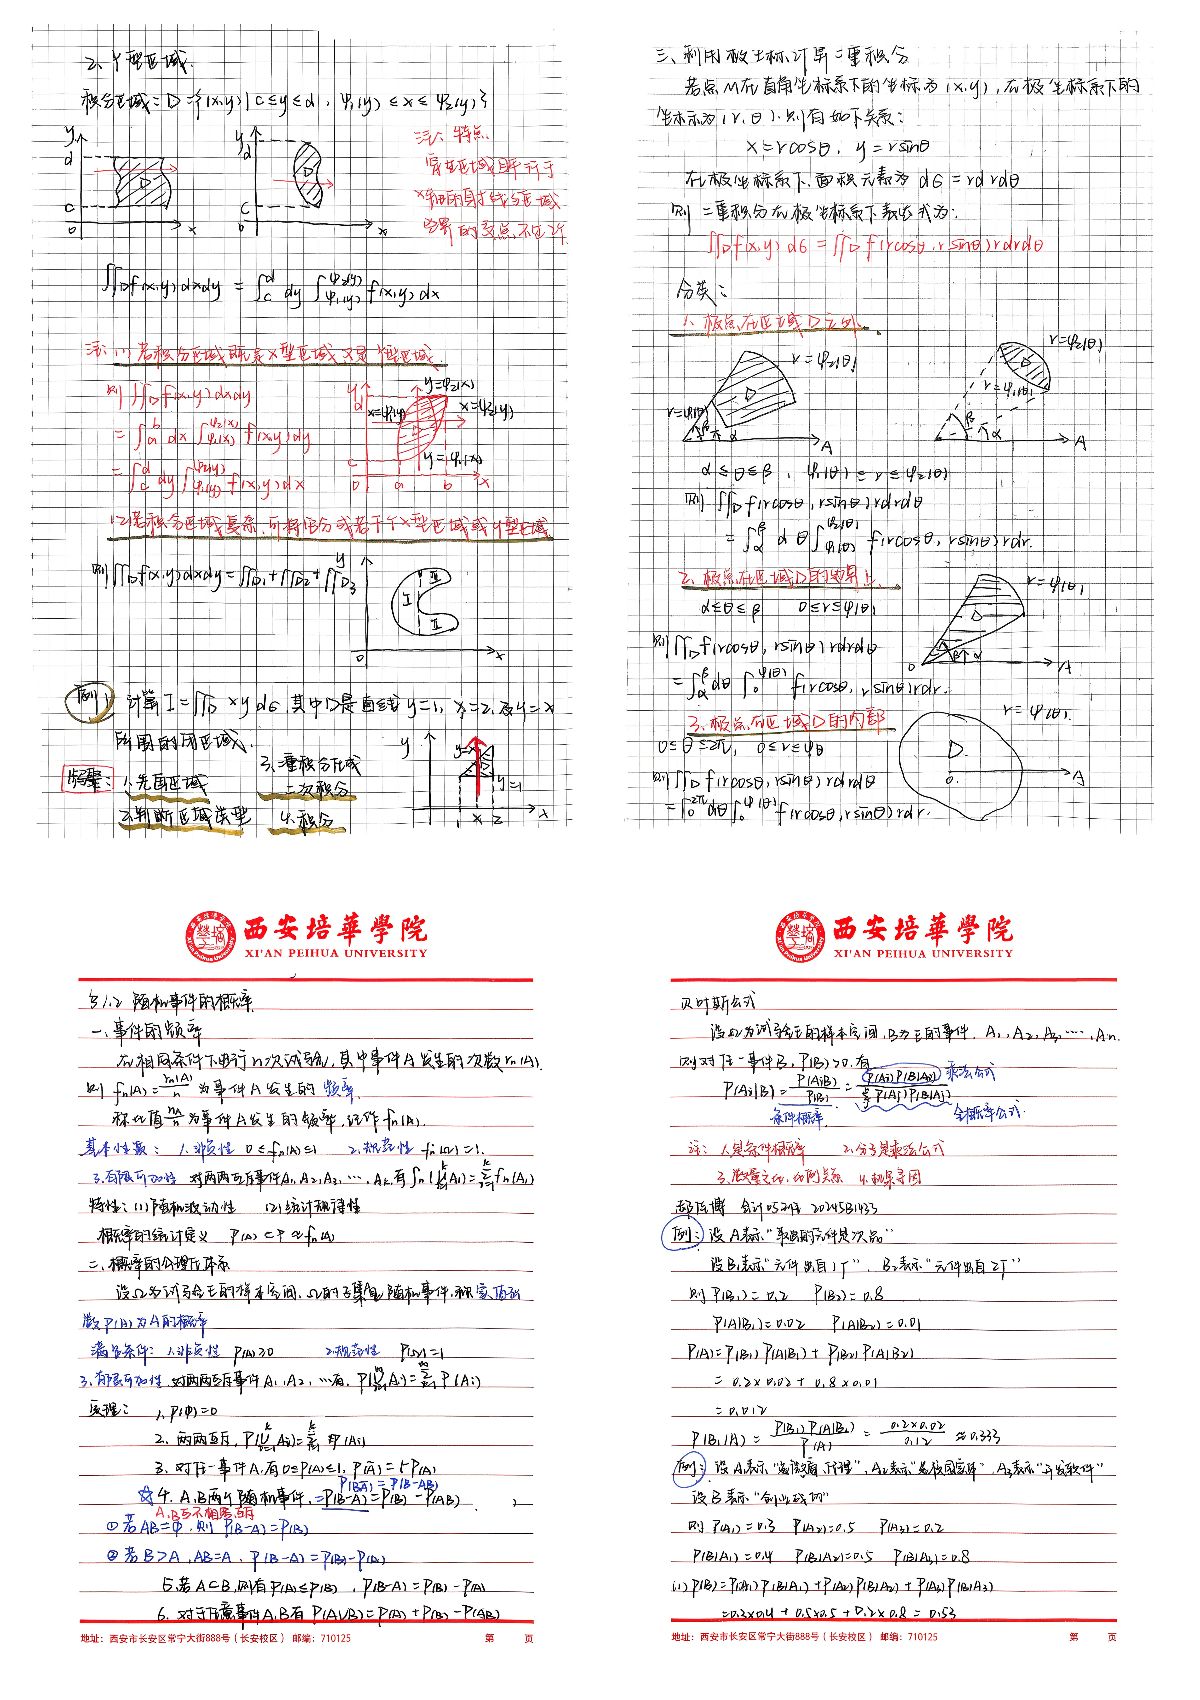 2、Y型区域.
积分区域=D={(x,y)|c≤y≤d, φ₁(y)≤x≤φ₂(y)}
y d c 0 D x
y d c 0 D x
注: 特点.
穿过区域且平行于
x轴的直线与区域
边界的交点不过两
∬_D f(x,y)dxdy = ∫_c^d dy ∫_{φ₁(y)}^{φ₂(y)} f(x,y)dx
注:(1)若积分区域既是X型区域又是Y型区域
则∬_D f(x,y)dxdy
=∫_a^b dx ∫_{φ₁(x)}^{φ₂(x)} f(x,y)dy
=∫_c^d dy ∫_{φ₁(y)}^{φ₂(y)} f(x,y)dx
y d x=φ₁(y) y=φ₂(x) x=φ₂(y) D y=φ₁(x) c 0 a b x
(2)若积分区域复杂,可将它分成若干个X型区域或Y型区域
则∬_D f(x,y)dxdy=∬_{D₁}+∬_{D₂}+∬_{D₃}
y I II II 0 x
例1 计算I=∬_D xy dσ,其中D是直线y=1,x=2,及y=x
所围的闭区域.
步骤: 1.先画区域
2.判断区域类型
3.二重积分化成
二次积分
4.积分
y y=x y=1 x 2 x
三、利用极坐标计算二重积分
若点M在直角坐标系下的坐标为(x,y),在极坐标系下的
坐标为(r,θ).则有如下关系:
x=rcosθ, y=rsinθ
在极坐标系下,面积元素为dσ=rdrdθ
则二重积分在极坐标系下表达式为:
∬_D f(x,y)dσ=∬_D f(rcosθ,rsinθ)rdrdθ
分类:
1、极点在区域D之外
r=φ₂(θ) D r=φ₁(θ) β α A
r=φ₂(θ) D r=φ₁(θ) β α A
α≤θ≤β, φ₁(θ)≤r≤φ₂(θ)
则∬_D f(rcosθ,rsinθ)rdrdθ
=∫_α^β dθ∫_{φ₁(θ)}^{φ₂(θ)} f(rcosθ,rsinθ)rdr.
2、极点在区域D的边界上
α≤θ≤β 0≤r≤φ(θ)
r=φ(θ) D 0 β α A
则∬_D f(rcosθ,rsinθ)rdrdθ
=∫_α^β dθ ∫_0^{φ(θ)} f(rcosθ,rsinθ)rdr.
3、极点在区域D的内部
0≤θ≤2π, 0≤r≤φθ
r=φ(θ). D 0. A
则∬_D f(rcosθ,rsinθ)rdrdθ
=∫_0^{2π} dθ∫_0^{φ(θ)} f(rcosθ,rsinθ)rdr.
西安培華學院
XI'AN PEIHUA UNIVERSITY
§1.2 随机事件的概率
一、事件的频率
在相同条件下进行n次试验,其中事件A发生的次数rₙ(A).
则fₙ(A)=rₙ(A)/n为事件A发生的频率.
基本性质: 1.非负性 0≤fₙ(A)≤1 2.规范性 fₙ(Ω)=1.
3.有限可加性 对两两互斥事件A₁,A₂,…,A_k,有
特性:(1)随机波动性 (2)统计规律性
概率的统计定义
二、概率的公理化体系
设Ω为试验E的样本空间,Ω的子集A随机事件,称实值函
数P(A)为A的概率
满足条件: 1.非负性 P(A)≥0 2.规范性 P(Ω)=1
3.有限可加性 对两两互斥事件A₁,A₂,…有,P(∪Aᵢ)=ΣP(Aᵢ)
定理: 1.P(Φ)=0
2.两两互斥,P(∪Aᵢ)=ΣP(Aᵢ)
3.对任一事件A,有0≤P(A)≤1,P(Ā)=1-P(A)
P(BĀ)=P(B-AB)
☆4.A,B两个随机事件,=P(B-A)=P(B)-P(AB)
A,B互不相容,互斥
①若AB=Φ,则P(B-A)=P(B)
②若B>A,AB=A,P(B-A)=P(B)-P(A)
5.若A⊂B,则有P(A)≤P(B),P(B-A)=P(B)-P(A)
6.对于任意事件A,B有P(A∪B)=P(A)+P(B)-P(AB)
地址:西安市长安区常宁大街888号(长安校区) 邮编:710125 第 页
西安培華學院
XI'AN PEIHUA UNIVERSITY
贝叶斯公式
设Ω为试验E的样本空间,B为E的事件,A₁,A₂,A₃,…,Aₙ
则对任一事件B,P(B)>0.有
P(Aᵢ|B)=P(AᵢB)/P(B)=P(Aᵢ)P(B|Aᵢ)/ΣP(Aⱼ)P(B|Aⱼ) 乘法公式
条件概率 全概率公式.
注: 1.是条件概率 2.分子是乘法公式
4.执果寻因
会计 20245B1433
例: 设A表示"取出的元件是次品"
设B₁表示"元件出自1厂", B₂表示"元件出自2厂"
则P(B₁)=0.2 P(B₂)=0.8
P(A|B₁)=0.02 P(A|B₂)=0.01
P(A)=P(B₁)P(A|B₁)+P(B₂)P(A|B₂)
=0.2×0.02+0.8×0.01
=0.012
P(B₁|A)=P(B₁)P(A|B₁)/P(A)=0.2×0.02/0.12≈0.333
例: 设A₁表示 A₂表示 A₃表示"开发软件"
设B表示
则P(A₁)=0.3 P(A₂)=0.5 P(A₃)=0.2
P(B|A₁)=0.4 P(B|A₂)=0.5 P(B|A₃)=0.8
(1)P(B)=P(A₁)P(B|A₁)+P(A₂)P(B|A₂)+P(A₃)P(B|A₃)
=0.3×0.4+0.5×0.5+0.2×0.8=0.53
地址:西安市长安区常宁大街888号(长安校区) 邮编:710125 第 页